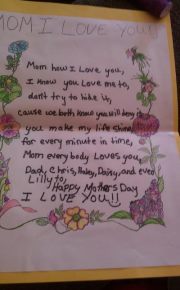 MOM I LOVE YOU!!
Mom how I Love you,
I know you Love me to,
don't try to hide it,
cause we both know you will deny it
you make my life shine,
for every minute in time,
Mom every body Loves you,
Dad, Chris, Haley, Daisy, and even
Lilly to,
Happy Mothers Day
I LOVE YOU!!